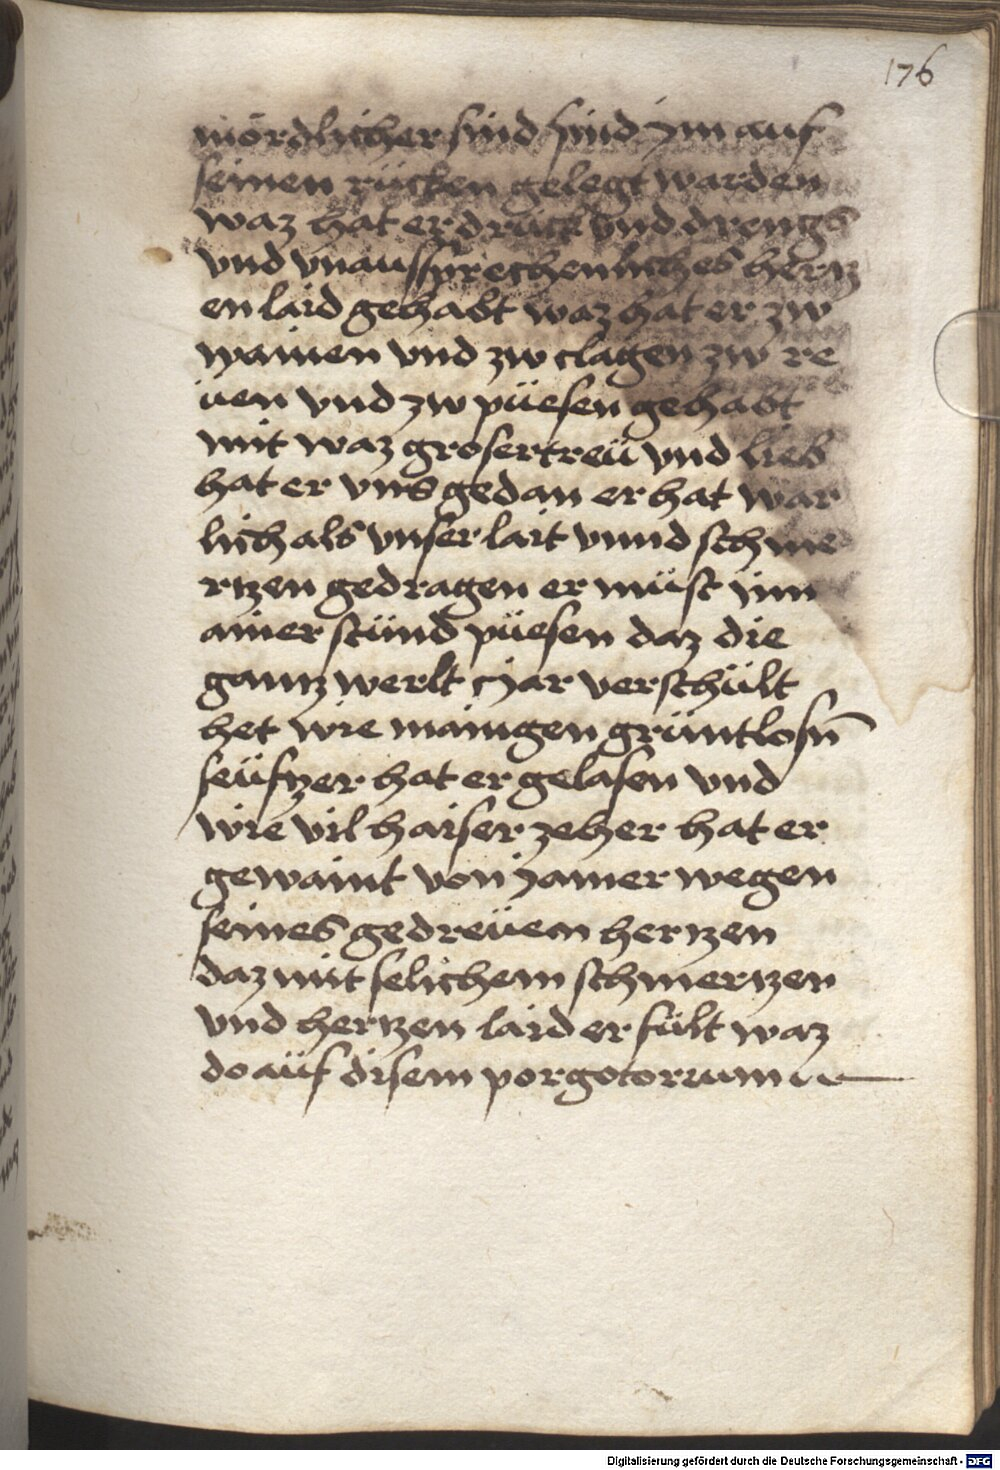 176
mördlicher sünd sind jm auf
seinen rücken gelegt warden
waz hat er drück vnd drengs
vnd vnaussprechenliches hertz
en laid gehabt waz hat er zw
wainen vnd zw clagen zw re
üen vnd zw püesen gehabt
mit waz groser treü vnd lieb
hat er vns gedan er hat war
lich als vnser lait vnnd schme
rtzen gedragen er müst jnn
ainer stünd püesen daz die
gantz werlt jar verschült
het wie mainigen grüntlosn̄
seüfzer hat er gelasen vnd
wie vil haiser zeher hat er
gewaint von jamer wegen
seines gedreüem hertzen
daz mit selichem schmertzen
vnd hertzen laid erfült waz
do aüf disem
Digitalisierung gefördert durch die Deutsche Forschungsgemeinschaft - DFG
DFG